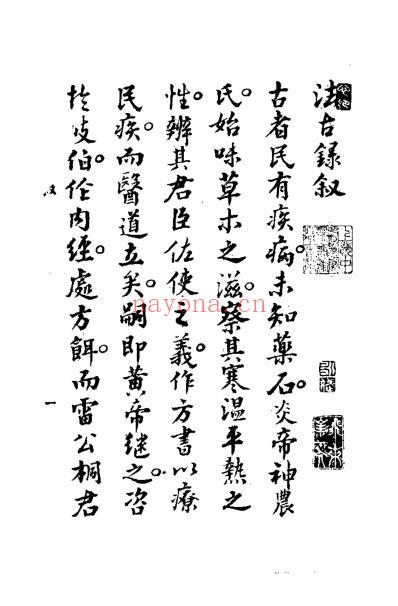 法古録叙
古者民有疾病未知藥石炎帝神農
氏。始味草木之滋。察其寒温平熱之
性。辨其君臣佐使之義。作方書以療
民疾。而醫道立矣。嗣即黄帝繼之。咨
於岐伯。作内經。處方餌。而雷公桐君
叙
一
nayona.cn